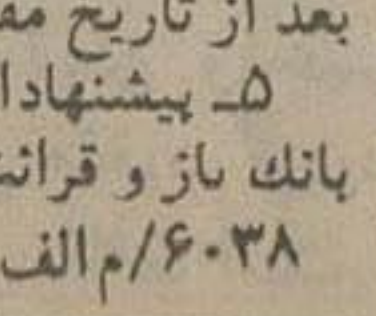 بعد از تاریخ مق
۵ـ پیشنهادا
بانك باز و قرائت
۶۰۳۸/م الف